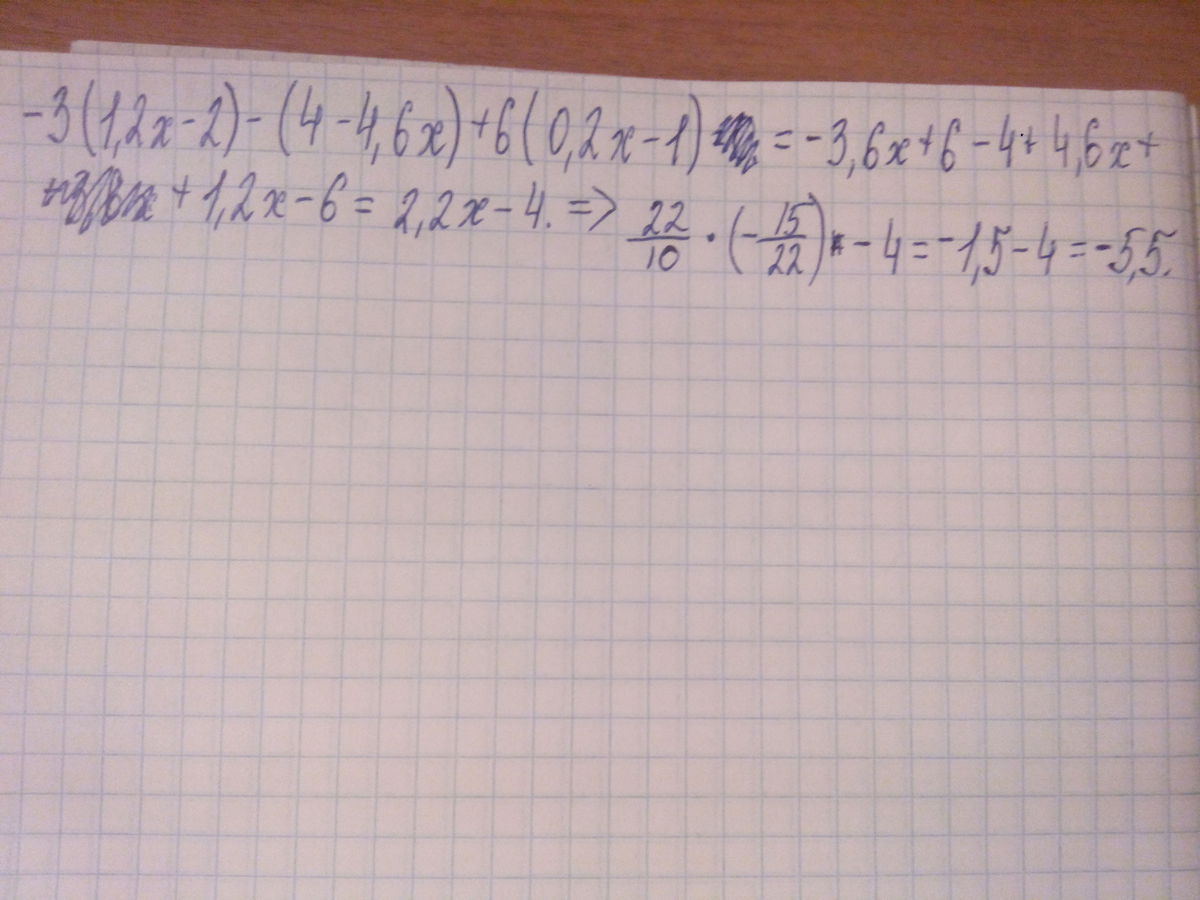 -3(1,2x-2)-(4-4,6x)+6(0,2x-1) =-3,6x+6-4+4,6x+
+1,2x-6= 2,2x-4. => 22/10 · (-15/22) - 4 = -1,5-4=-5,5.